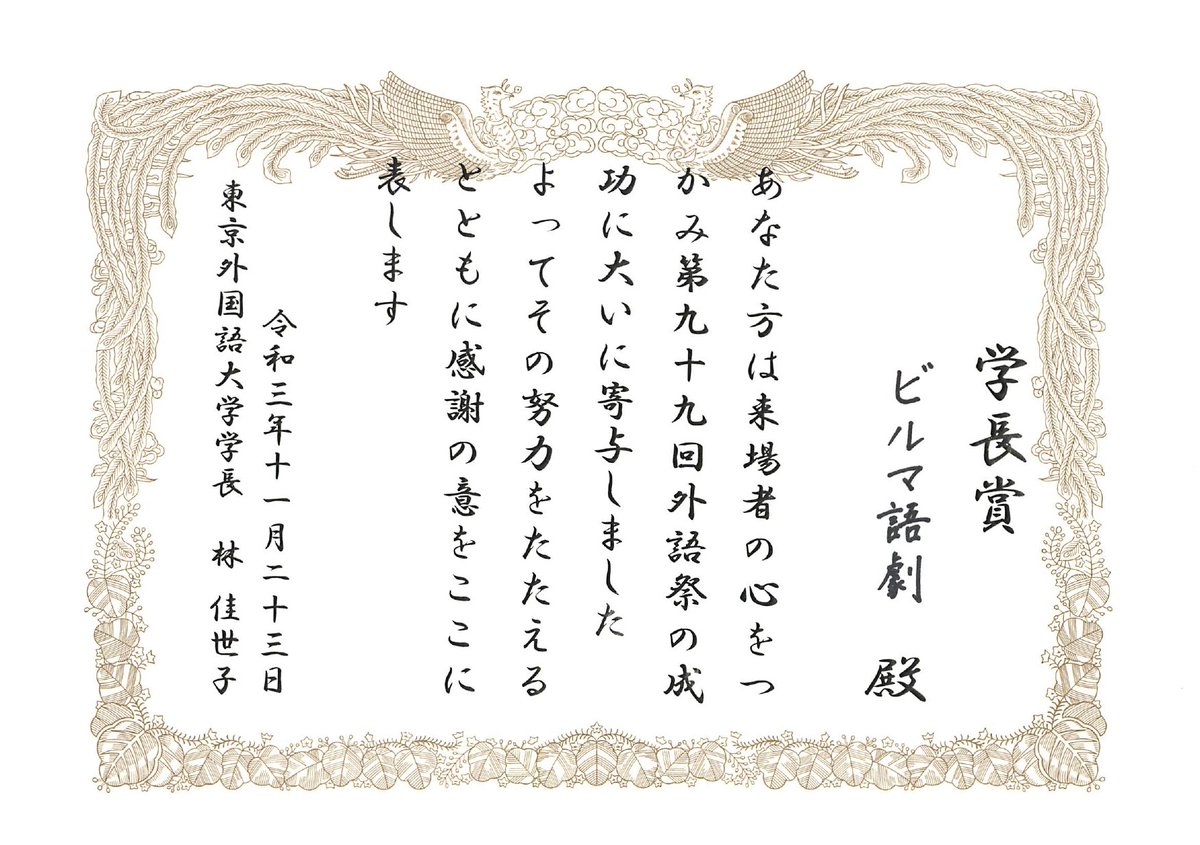 学長賞
ビルマ語劇 殿
あなた方は来場者の心をつ
かみ第九十九回外語祭の成
功に大いに寄与しました
よってその努力をたたえる
とともに感謝の意をここに
表します
令和三年十一月二十三日
東京外国語大学学長 林 佳世子